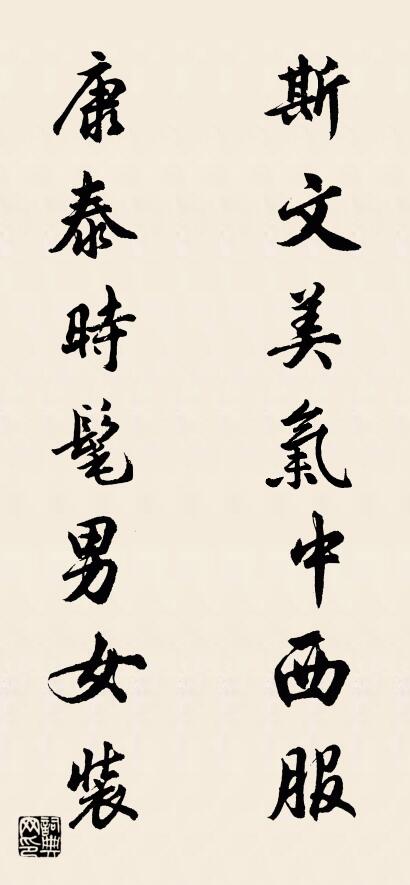 斯文美氣中西服
康泰時髦男女裝
詞典網印